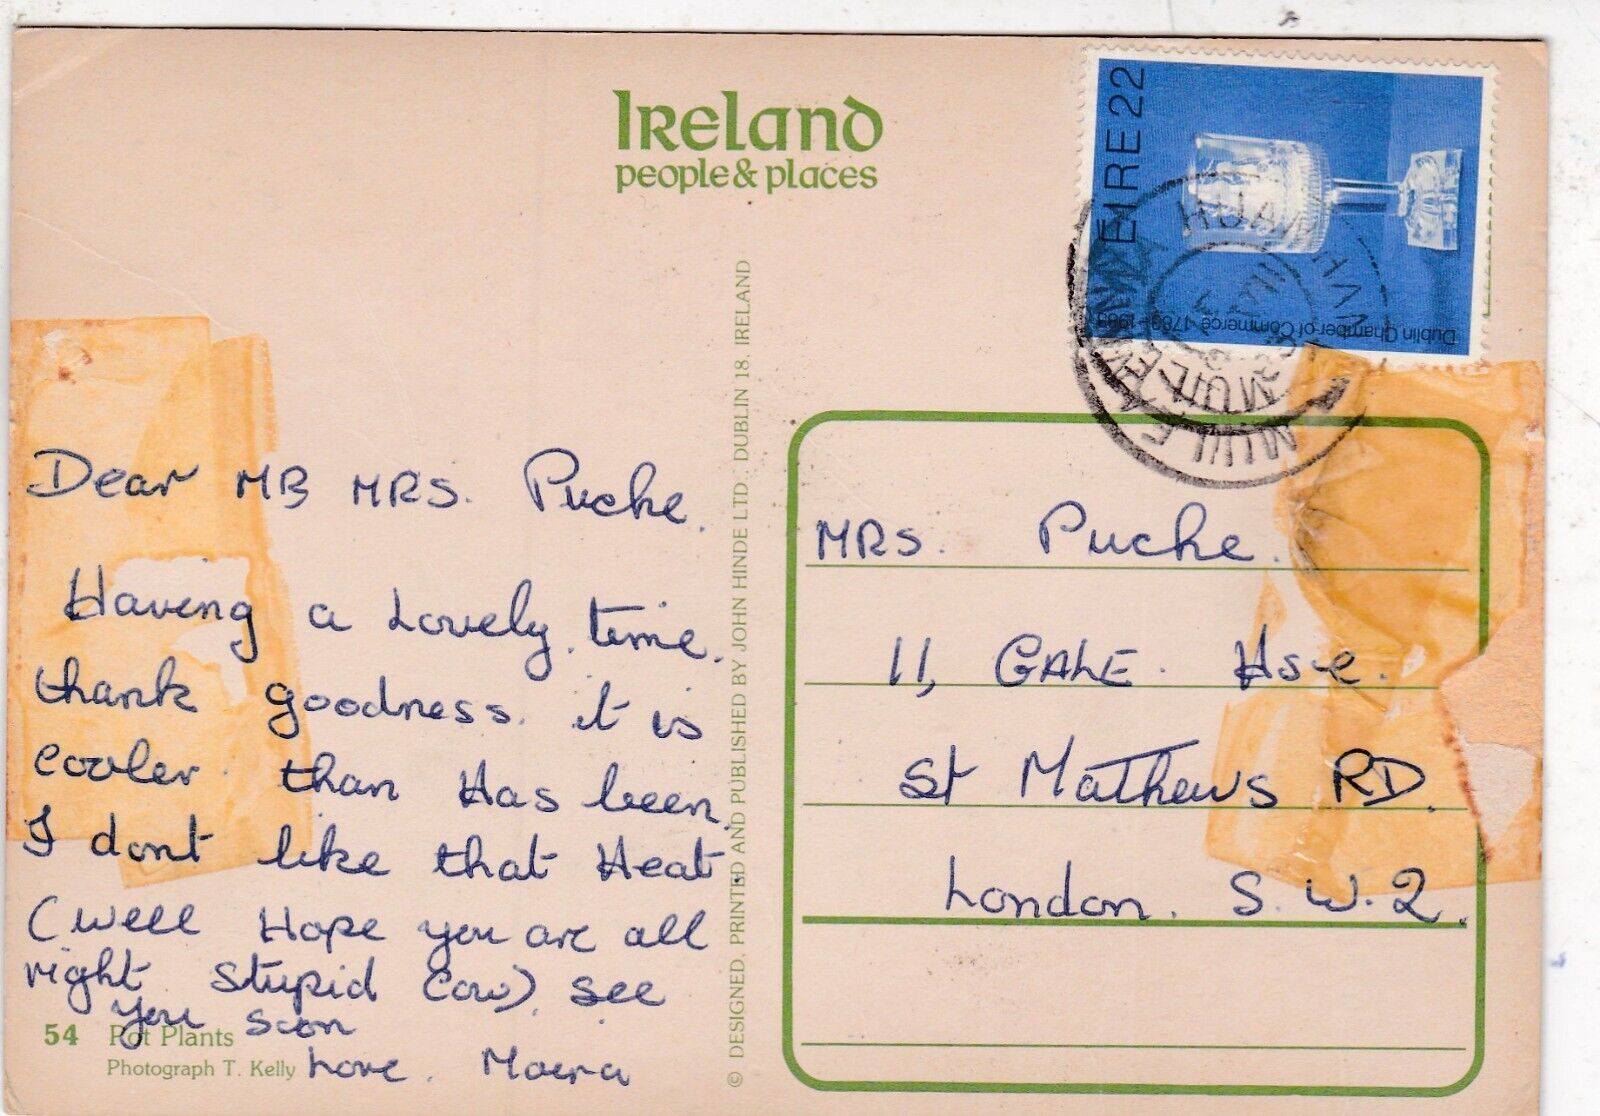 IRELAND
people & places
EIRE 22
Dublin Chamber of Commerce 1783-1983
Dear MR MRS. Puche.
Having a Lovely. time.
thank goodness. it is
cooler. than Has been.
I dont like that Heat.
(well Hope you are all
right Stupid Cow). See
you soon
Love. Moera
54 Pot Plants
Photograph T. Kelly
© DESIGNED, PRINTED AND PUBLISHED BY JOHN HINDE LTD., DUBLIN 18, IRELAND
MRS. Puche.
11, GALE. Hse.
St Mathews RD.
London. S. W. 2.